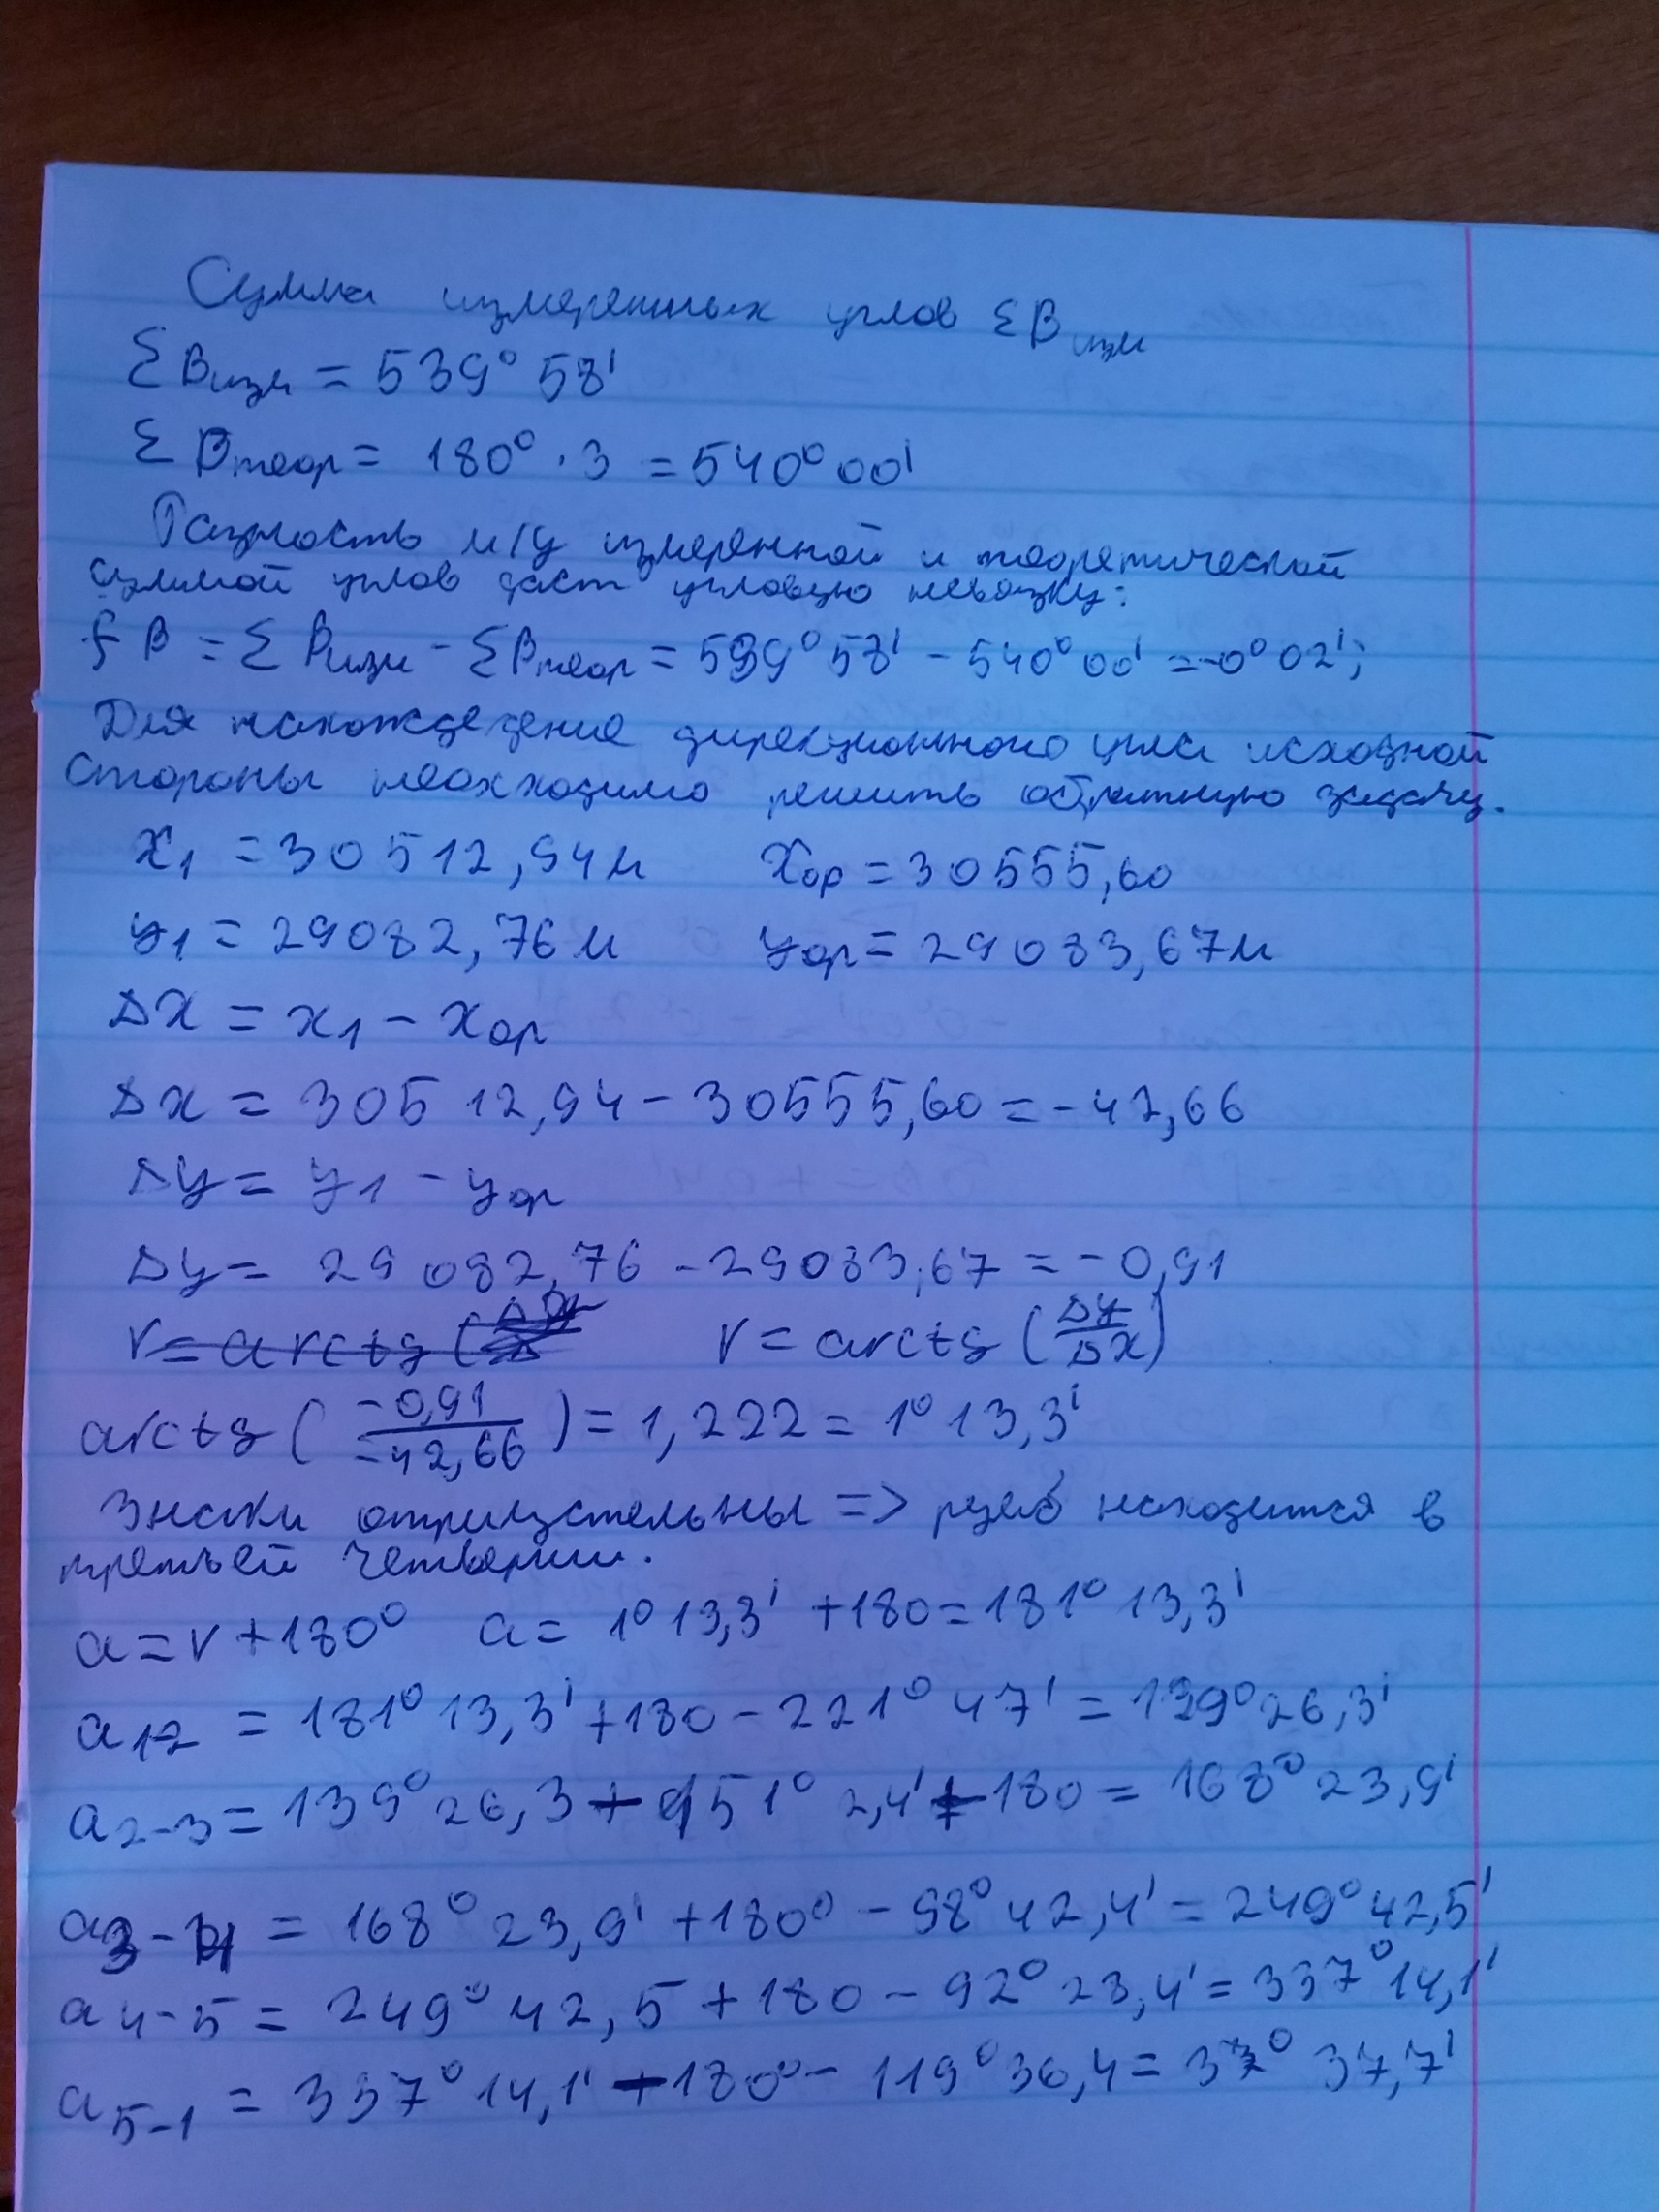 Сумма измеренных углов ΣBизм
ΣBизм = 539° 58'
ΣBтеор = 180° · 3 = 540° 00'
Разность м/у измеренной и теоретической
суммой углов даст угловую невязку:
fB = ΣBизм - ΣBтеор = 539° 58' - 540° 00' = -0° 02';
Для нахождедение дирекционного угла исходной
стороны неоxходимо решить обратную задачу.
x1 = 30512,94м xор = 30555,60
y1 = 29082,76м yор = 29083,67м
Δx = x1 - xор
Δx = 30512,94 - 30555,60 = -42,66
Δy = y1 - yор
Δy = 29082,76 - 29083,67 = -0,91
r = arctg ( r = arctg (Δy/Δx)
arctg (-0,91/-42,66) = 1,222 = 1° 13,3'
Знаки отрицательны => румб находится в
третьей четверти.
a = r + 180° a = 1° 13,3' + 180 = 181° 13,3'
a1-2 = 181° 13,3' + 180 - 221° 47' = 139° 26,3'
a2-3 = 139° 26,3 + 151° 2,4' - 180 = 168° 23,9'
a3-4 = 168° 23,9' + 180° - 98° 42,4' = 249° 42,5'
a4-5 = 249° 42,5 + 180 - 92° 23,4' = 337° 14,1'
a5-1 = 337° 14,1' - 180° - 119° 36,4 = 37° 37,7'